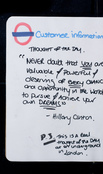 Customer information
THOUGHT OF THE DAY.
"NEVER doubt that you are
valuable & powerful &
deserving of every chance
and opportunity in the world
to pursue & achieve your
own DREAMS"
- Hillary Clinton.
P.S. This is a real
thought of the day
in an underground
in London.